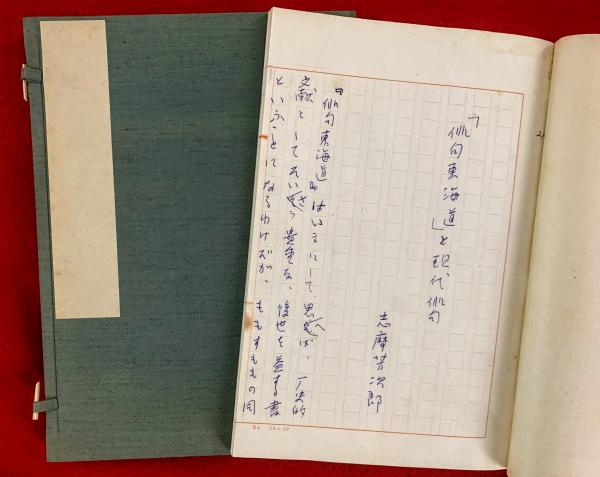 「俳句東海道」と現代俳句
志摩芳次郎
『俳句東海道』はいまにして思へば、厂史的
文献としてたいさう貴重な、後世を益する書
といふことになるわけだが、ももすももの同
B4 20×20